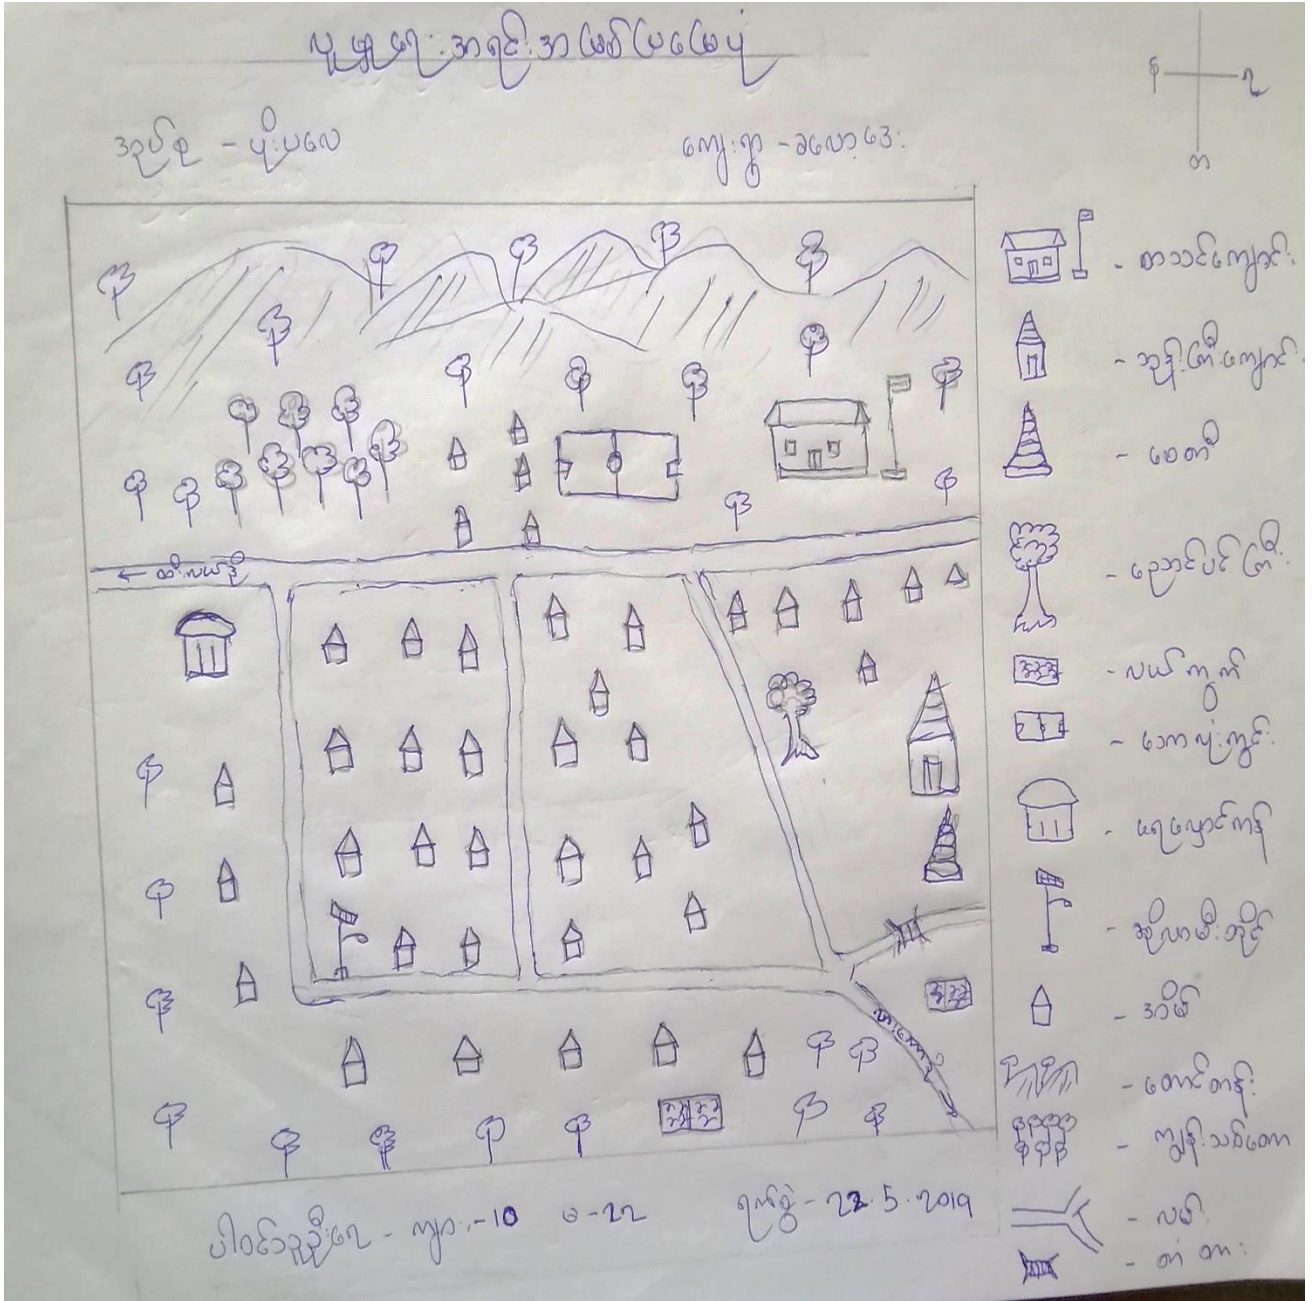 လူမှုရေးအရင်းအမြစ်ပြမြေပုံ
န
ရ
တ
အုပ်စု - ပိုးပလေ
ကျေးရွာ - ခလော့ဒေး
- စာသင်ကျောင်း
- ဘုန်းကြီးကျောင်း
- စေတီ
- ညောင်ပင်ကြီး
- လယ်ကွက်
- ဘောလုံးကွင်း
- ရေလှောင်ကန်
- ဆိုလာမီးတိုင်
- အိမ်
- တောင်တန်း
- ကျွန်းသစ်တော
- လမ်း
- တံတား
← ထီးလယ်ဒို
ပါဝင်သူဦးရေ - ကျား-10 မ-၁၂
ရက်စွဲ - 22.5.2019